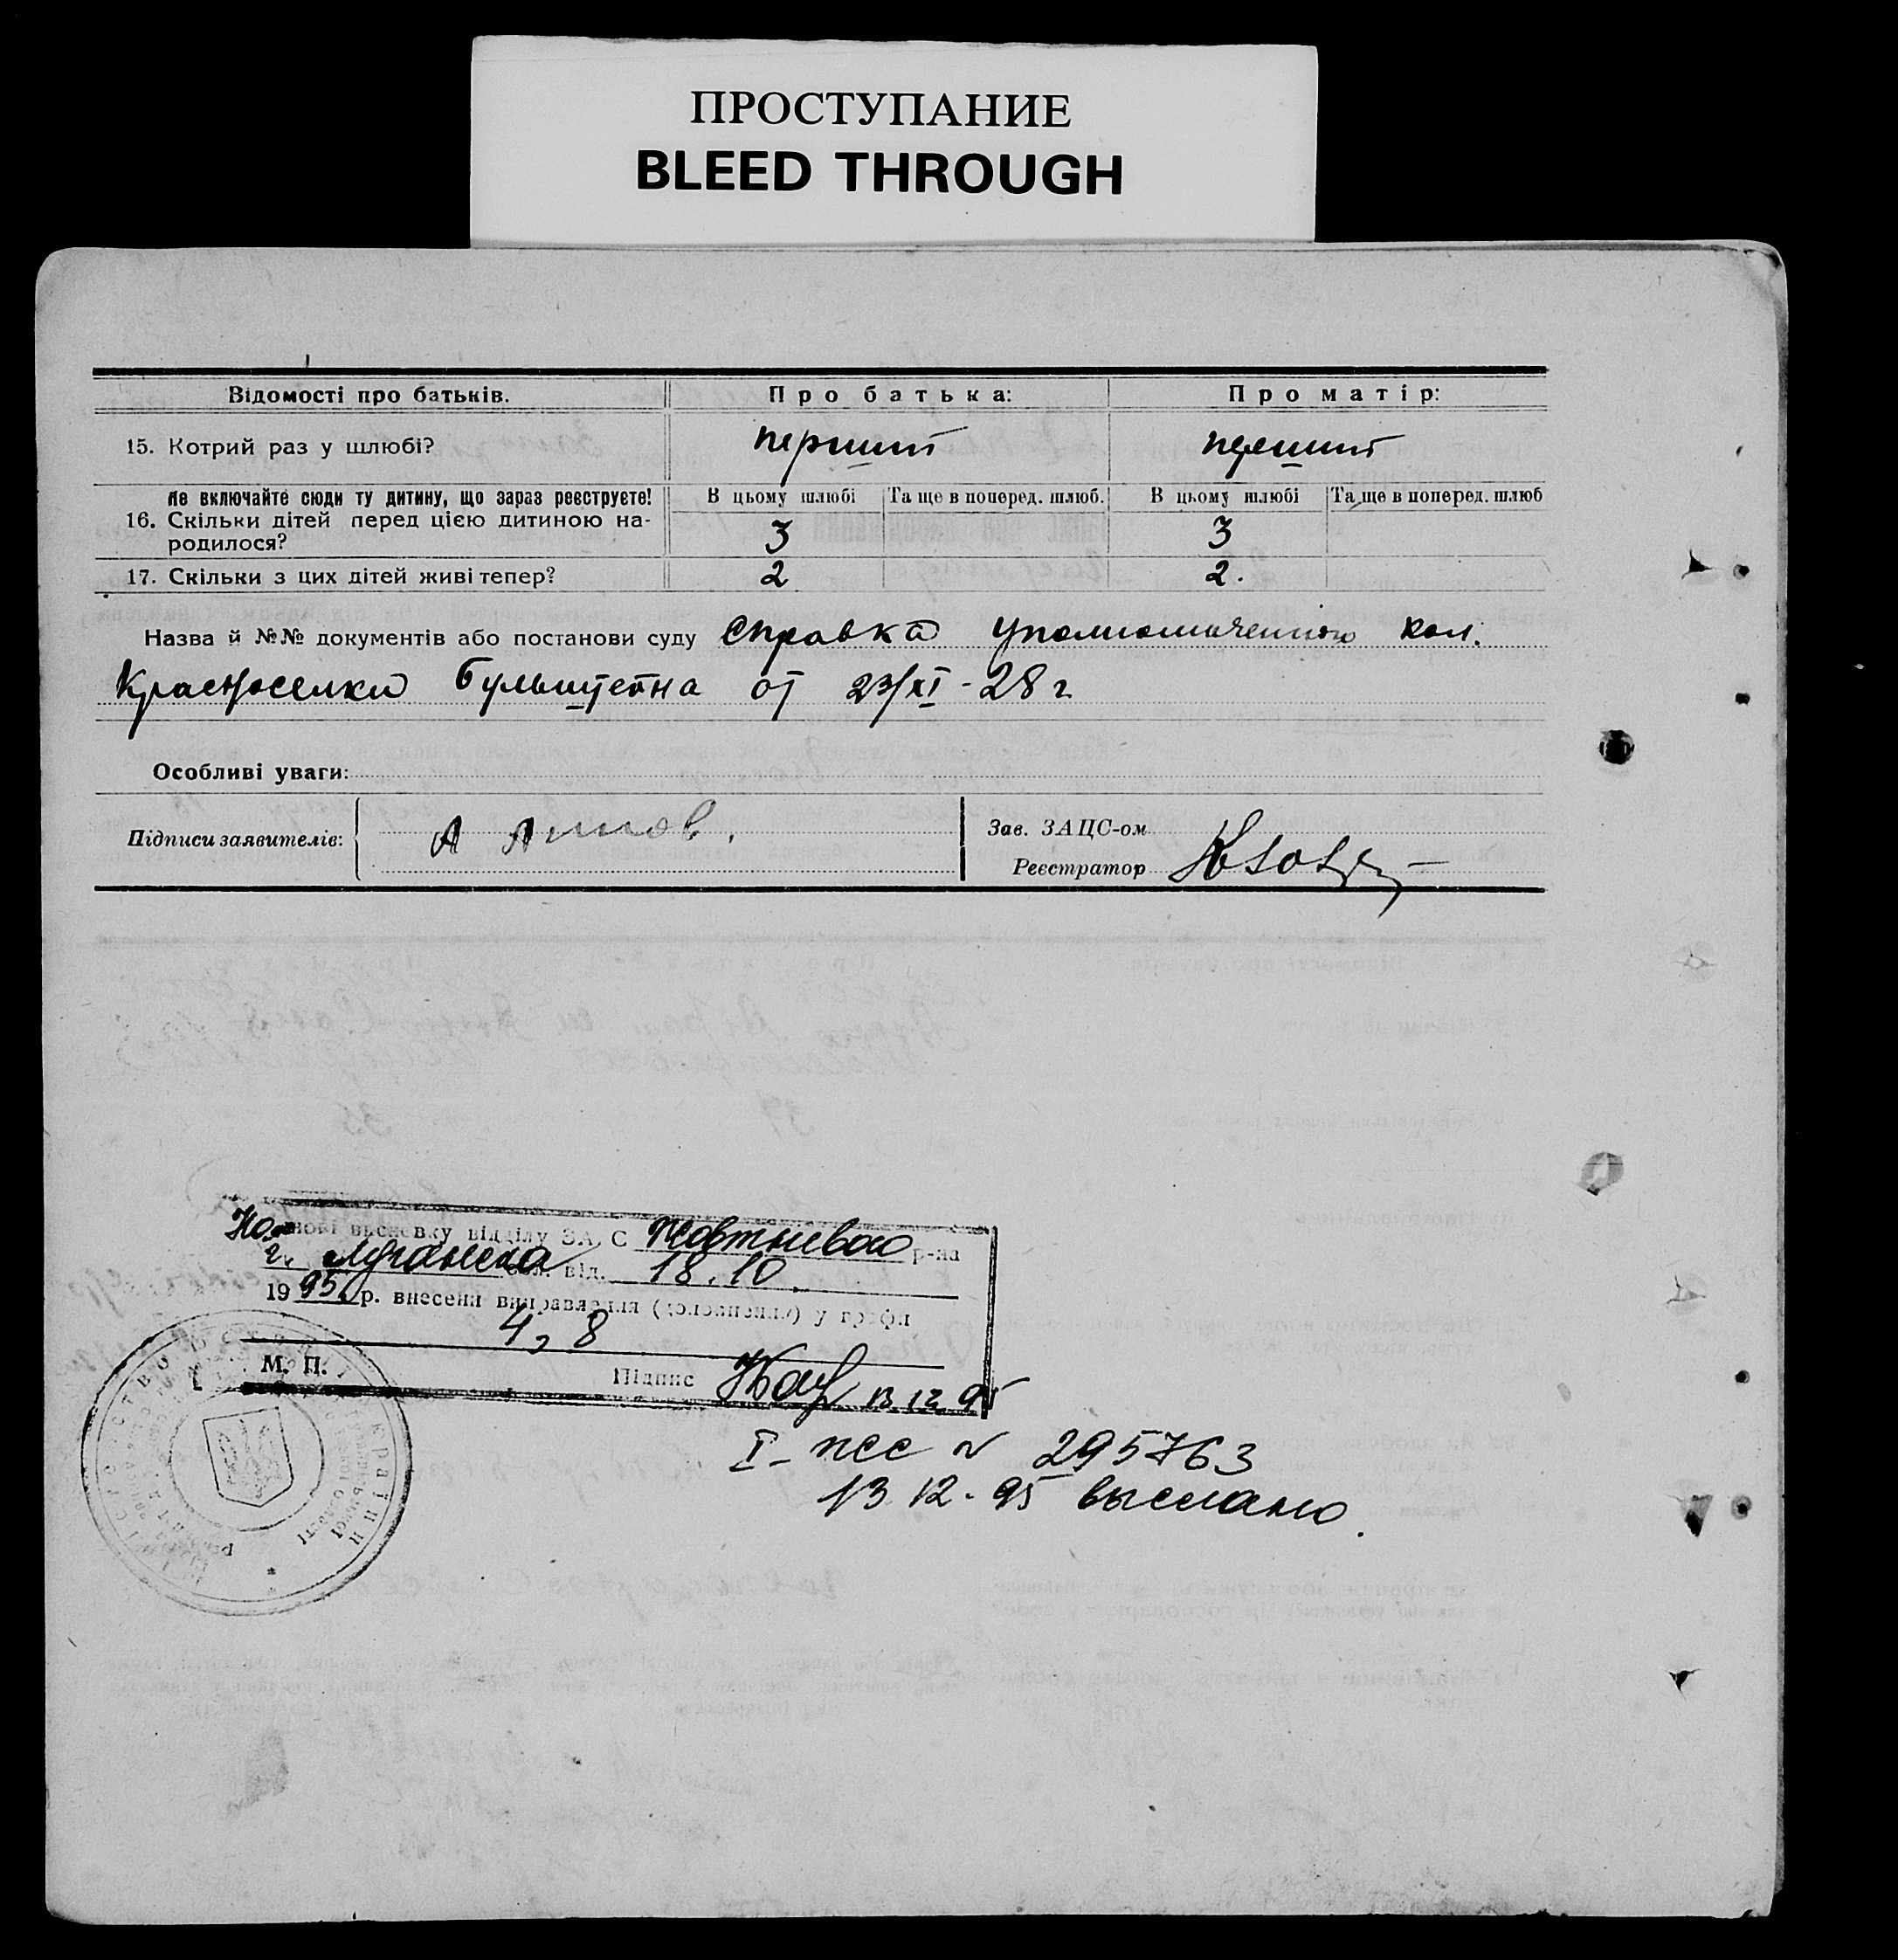 ПРОСТУПАНИЕ
BLEED THROUGH
Відомості про батьків. Про батька: Про матір:
15. Котрий раз у шлюбі? перший перший
Не включайте сюди ту дитину, що зараз реєструєте! В цьому шлюбі Та ще в поперед. шлюб. В цьому шлюбі Та ще в поперед. шлюб
16. Скільки дітей перед цією дитиною на-
родилося? 3 3
17. Скільки з цих дітей живі тепер? 2 2.
Назва й №№ документів або постанови суду Справка уполномоченного кол.
Красноселки Бульштейна от 23/XI-28 г
Особливі уваги:
Підписи заявителів: А
Зав. ЗАЦС-ом
Реєстратор
На основі висновку відділу ЗАГС Жовтневого р-на
г. Луганска від. 18.10.
1995 р. внесені виправлення (доповнення) у графи
4, 8
М. П. Підпис 13.12.95
I- № 295763
13.12.95 выслано.